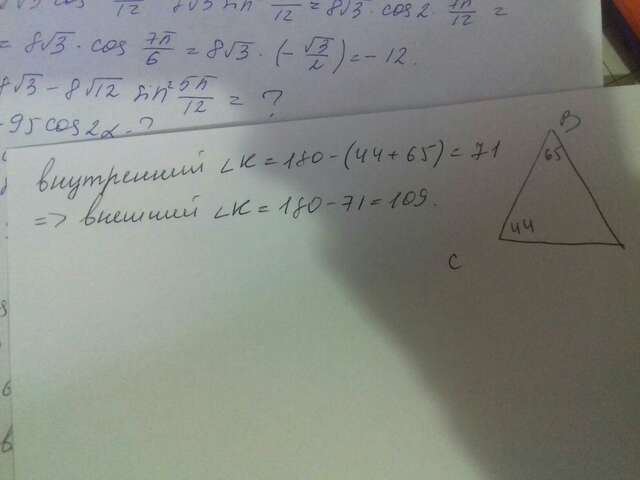 12 12 = 8√3 · cos 2 · 7π/12 =
= 8√3 · cos 7π/6 = 8√3 · (-√3/2) = -12.
8√3 - 8√12 sin² 5π/12 = ?
-95 cos2α ?
внутренний ∠К = 180 - (44 + 65) = 71
=> внешний ∠К = 180 - 71 = 109.
В
65
44
С